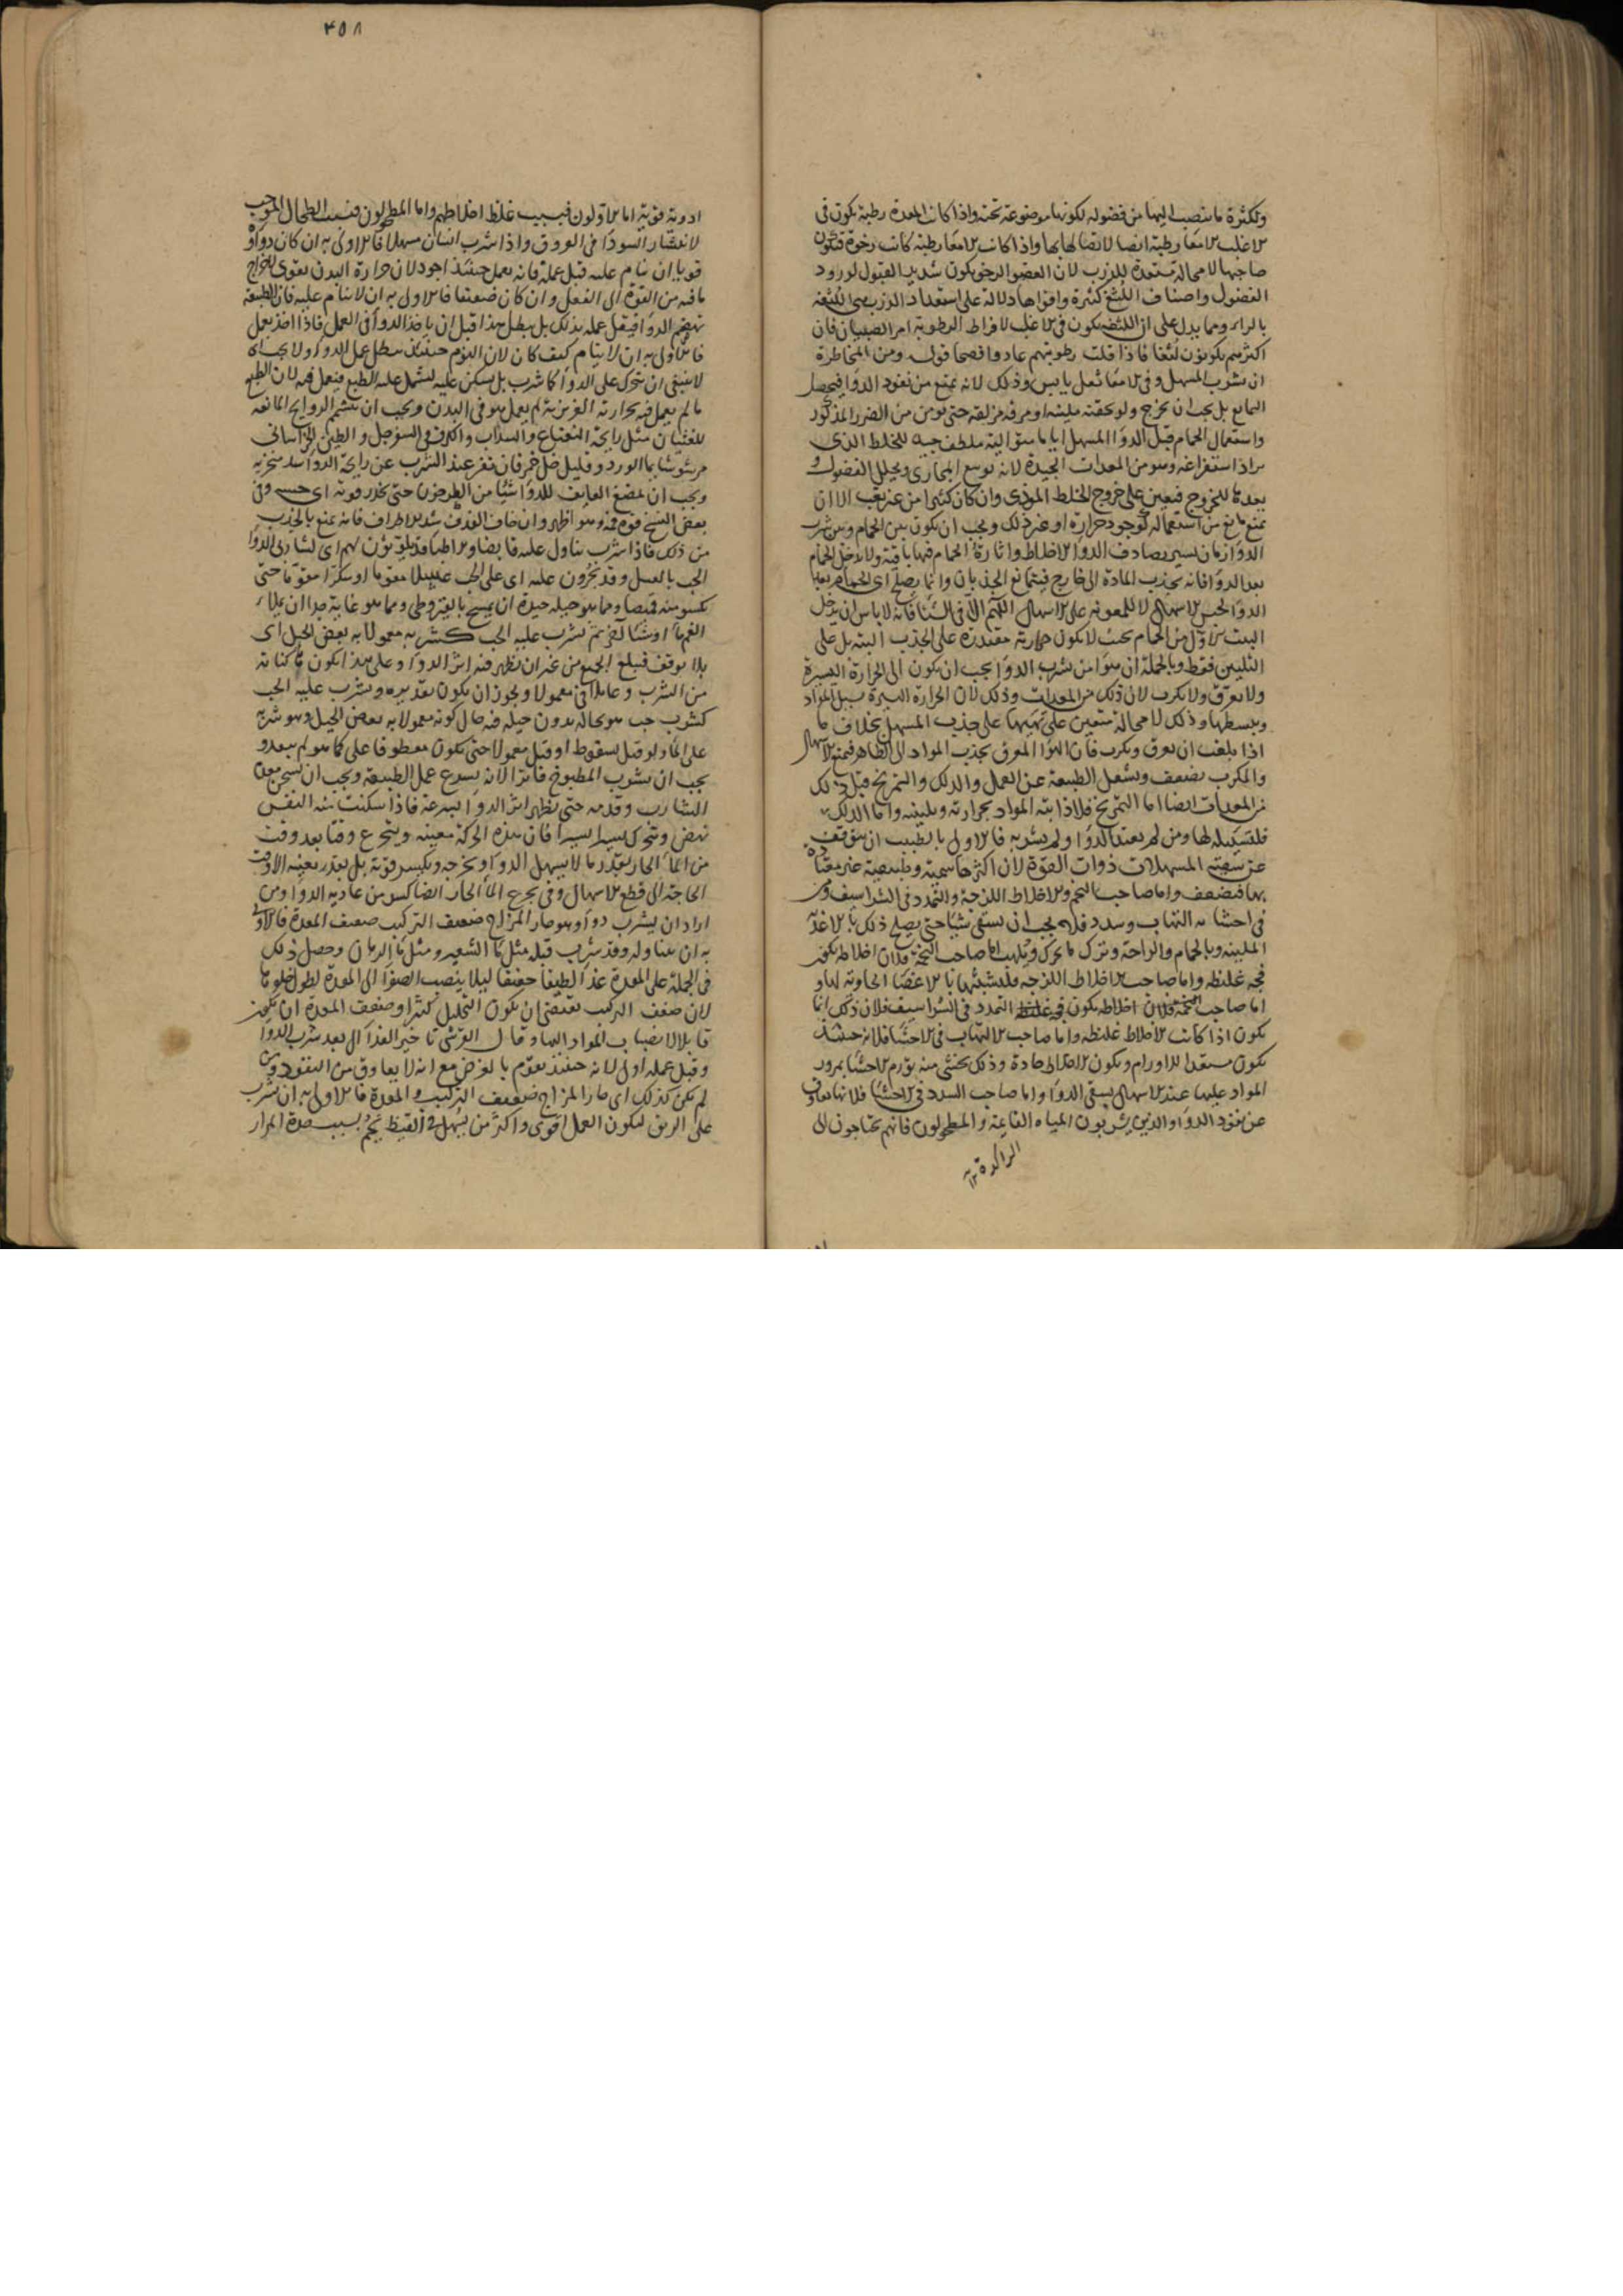 ولكثرة ما ينصب اليها من فضوله لكونها موضوعة تحته واذا كانت المعدة رطبة يكون فى
الاغلب الامعا رطبة ايضا لاتصالها بها واذا كانت الامعا رطبة كانت رخوة فتكون
صاحبها لا محالة مستعدة للذرب لان العضو الرخو يكون شديد القبول لورود
الفضول واصناف اللثغ كثيرة واقواها دلالة على استعداد الذرب هى اللثغة
بالراء ومما يدل على ان اللثغة يكون فى الاغلب لافراط الرطوبة امر الصبيان فان
اكثرهم يكونون لثغا فاذا قلت رطوبتهم عادوا فصحا قوله ومن المخاطرة
ان يشرب المسهل وفى الامعا ثفل يابس وذلك لانه يمنع من نفوذ الدوا فيحصل
التمانع بل يجب ان يخرج ولو بحقنة ملينة او مرقة مزلقة حتى يومن من الضرر المذكور
واستعمال الحمام قبل الدوا المسهل اياما متوالية ملطف جيد للخلط الذى
يراد استفراغه وهو من المعدات الجيدة لانه يوسع المجارى ويحلل الفضول و
يعدها للخروج فيعين على خروج الخلط الموذى وان كان كثيرا من غير تعب الا ان
يمنع مانع من استعماله لوجود حرارة او غير ذلك ويجب ان يكون بين الحمام وبين شرب
الدوا زمان يسير يصادف الدوا الاخلاط واثارة الحمام فيها باقية ولا يدخل الحمام
بعد الدوا فانه يجذب المادة الى خارج فيتمانع الجذبان وانما يصلح اى الحمام بعد
الدوا لحبس الاسهال لا للمعونة على الاسهال اللهم الا فى الشتا فانه لا باس ان يدخل
البيت الاول من الحمام بحيث لا يكون حرارته مقتدرة على الجذب البتة بل على
التليين فقط وبالجملة ان هوا من شرب الدوا يجب ان يكون الى الحرارة اليسيرة
ولا يعرق ولا يكرب لان ذلك من المعدات وذلك لان الحرارة اليسيرة يسيل المواد
ويبسطها وذلك لا محالة معين على تهيئها على جذب المسهل بخلاف ما
اذا بلغت ان يعرق ويكرب فان الهوا المعرق يجذب المواد الى الظاهر فيمنع الاسهال
والمكرب يضعف ويشغل الطبيعة عن العمل والدلك والتمريخ قبل ذلك
من المعدات ايضا اما التمريخ فلاذابته المواد بحرارته وتليينه واما الدلك
فلتسييله لها ومن لم يعتد الدوا ولم يشربه فالاولى بالطبيب ان يتوقف
عن سقيه المسهلات ذوات القوة لان اكثرها سمية وطبيعية غير معتادة
بها فيضعف واما صاحب التخم والاخلاط اللزجة والتمدد فى الشراسيف ومن
فى احشائه التهاب وسدد فلا يجب ان يسقى شيئا حتى يصلح ذلك بالاغذية
الملينة وبالحمام والراحة وترك ما يحرك ويلهب اما صاحب التخمة فلان اخلاطه تكون
فجة غليظة واما صاحب الاخلاط اللزجة فلتشبثها بالاعضا الحاوية لها و
اما صاحب التمدد فى الشراسيف فلان ذلك انما
يكون اذا كانت الاخلاط غليظة واما صاحب الالتهاب فى الاحشا فلانه حينئذ
يكون مستعدا للاورام ويكون الاخلاط حادة وذلك يخشى منه تورم الاحشا بمرور
المواد عليها عند الاسهال بسقى الدوا واما صاحب السدد فى الاحشا فلانها تعاوق
عن نفوذ الدوا والذين يشربون المياه القايمة والمطحولون فانهم يحتاجون الى
الراكدة
٣٥٨
ادوية قوية اما الاولون فبسبب غلظ اخلاطهم واما المطحولون فبسبب الطحال الموجب
لانتشار السودا فى العروق واذا شرب انسان مسهلا فالاولى به ان كان دواؤه
قويا ان ينام عليه قبل عمله فانه يعمل حينئذ اجود لان حرارة البدن يقوى لاخراج
ما فيه من القوة الى الفعل وان كان ضعيفا فالاولى به ان لا ينام عليه فان الطبيعة
تهضم الدوا فيقل عمله بذلك بل يبطل هذا قبل ان ياخذ الدوا فى العمل فاذا اخذ يعمل
فالاولى به ان لا ينام كيف كان لان النوم حينئذ يبطل عمل الدوا ولا يجب اى
لا ينبغى ان يتحرك على الدوا كما شرب بل يسكن عليه ليشتمل عليه الطبع فيعمل فيه لان الطبع
ما لم يعمل فيه بحرارته الغريزية لم يعمل هو فى البدن ويجب ان يتشمم الروايح المانعة
للغثيان مثل رايحة النعناع والسذاب والكرفس والسفرجل والطين الخراسانى
مرشوشا بما الورد وقليل خل خمر فان نفر عند الشرب عن رايحة الدوا سد منخريه
ويجب ان يمضغ العايف للدوا شيئا من الطرخون حتى يخدر قوته اى حسه وفى
بعض النسخ قوة فمه وهو اظهر وان خاف القذف شد الاطراف فانه يمنع بالجذب
من ذلك فاذا شرب يتناول عليه قابضا والاطبا قد يلوثون لهم اى لشاربى الدوا
الحب بالعسل وقد يجرون عليه اى على الحب عسلا مقوما او سكرا مقوما حتى
يكسوه منه قميصا ومما هو حيلة جيدة ان يمسح بالقيروطى ومما هو غاية جدا ان يملا
الفم ما او شيئا اخر ثم يشرب عليه الحب كشربه معمولا به بعض الحيل اى
بلا توقف فيبلغ الجميع من غير ان يظهر فيه اثر الدوا وعلى هذا يكون كناية
من الشرب و معمولا ويجوز ان يكون تقديره ويشرب عليه الحب
كشرب حب هو بحاله بدون حيلة فيه حال كونه معمولا به بعض الحيل وهو شربه
على الما ولو قيل بسقوط او قبل معمولا حتى يكون معطوفا على كما هو لم يبعد و
يجب ان يشرب المطبوخ فاترا لانه يسرع عمل الطبيعة ويجب ان يسخن معدة
الشارب وقدمه حتى يظهر اثر الدوا بسرعة فاذا سكنت منه النفس
نهض وتحرك يسيرا يسيرا فان هذه الحركة معينة ويتجرع وقتا بعد وقت
من الما الحار بقدر ما لا يسهل الدوا ويخرجه ويكسر قوته بل بقدر يعينه الا وقت
الحاجة الى قطع الاسهال وفى تجرع الما الحار ايضا كسر من عادية الدوا ومن
اراد ان يشرب دوا وهو حار المزاج ضعيف التركيب ضعيف المعدة فالاولى
به ان يتناوله وقد شرب قبله مثل ما الشعير ومثل ما الرمان وحصل ذلك
فى الجملة على المعدة غذا لطيفا خفيفا ليلا ينصب الصفرا الى المعدة لطول خلوها
لان ضعف التركيب يقتضى ان يكون التحليل كثيرا وضعف المعدة ان يكون
قابلا لانصباب المواد اليها وقال القرشى تاخير الغذا الى بعد شرب الدوا
وقبل عمله اولى لانه حينئذ يقوم بالغرض مع انه لا يعاوق من النفوذ ومن
لم يكن كذلك اى حار المزاج ضعيف التركيب والمعدة فالاولى به ان يشرب
على الريق ليكون العمل اقوى واكثر من يسهل فى القيظ يحم بسبب حدة المرار